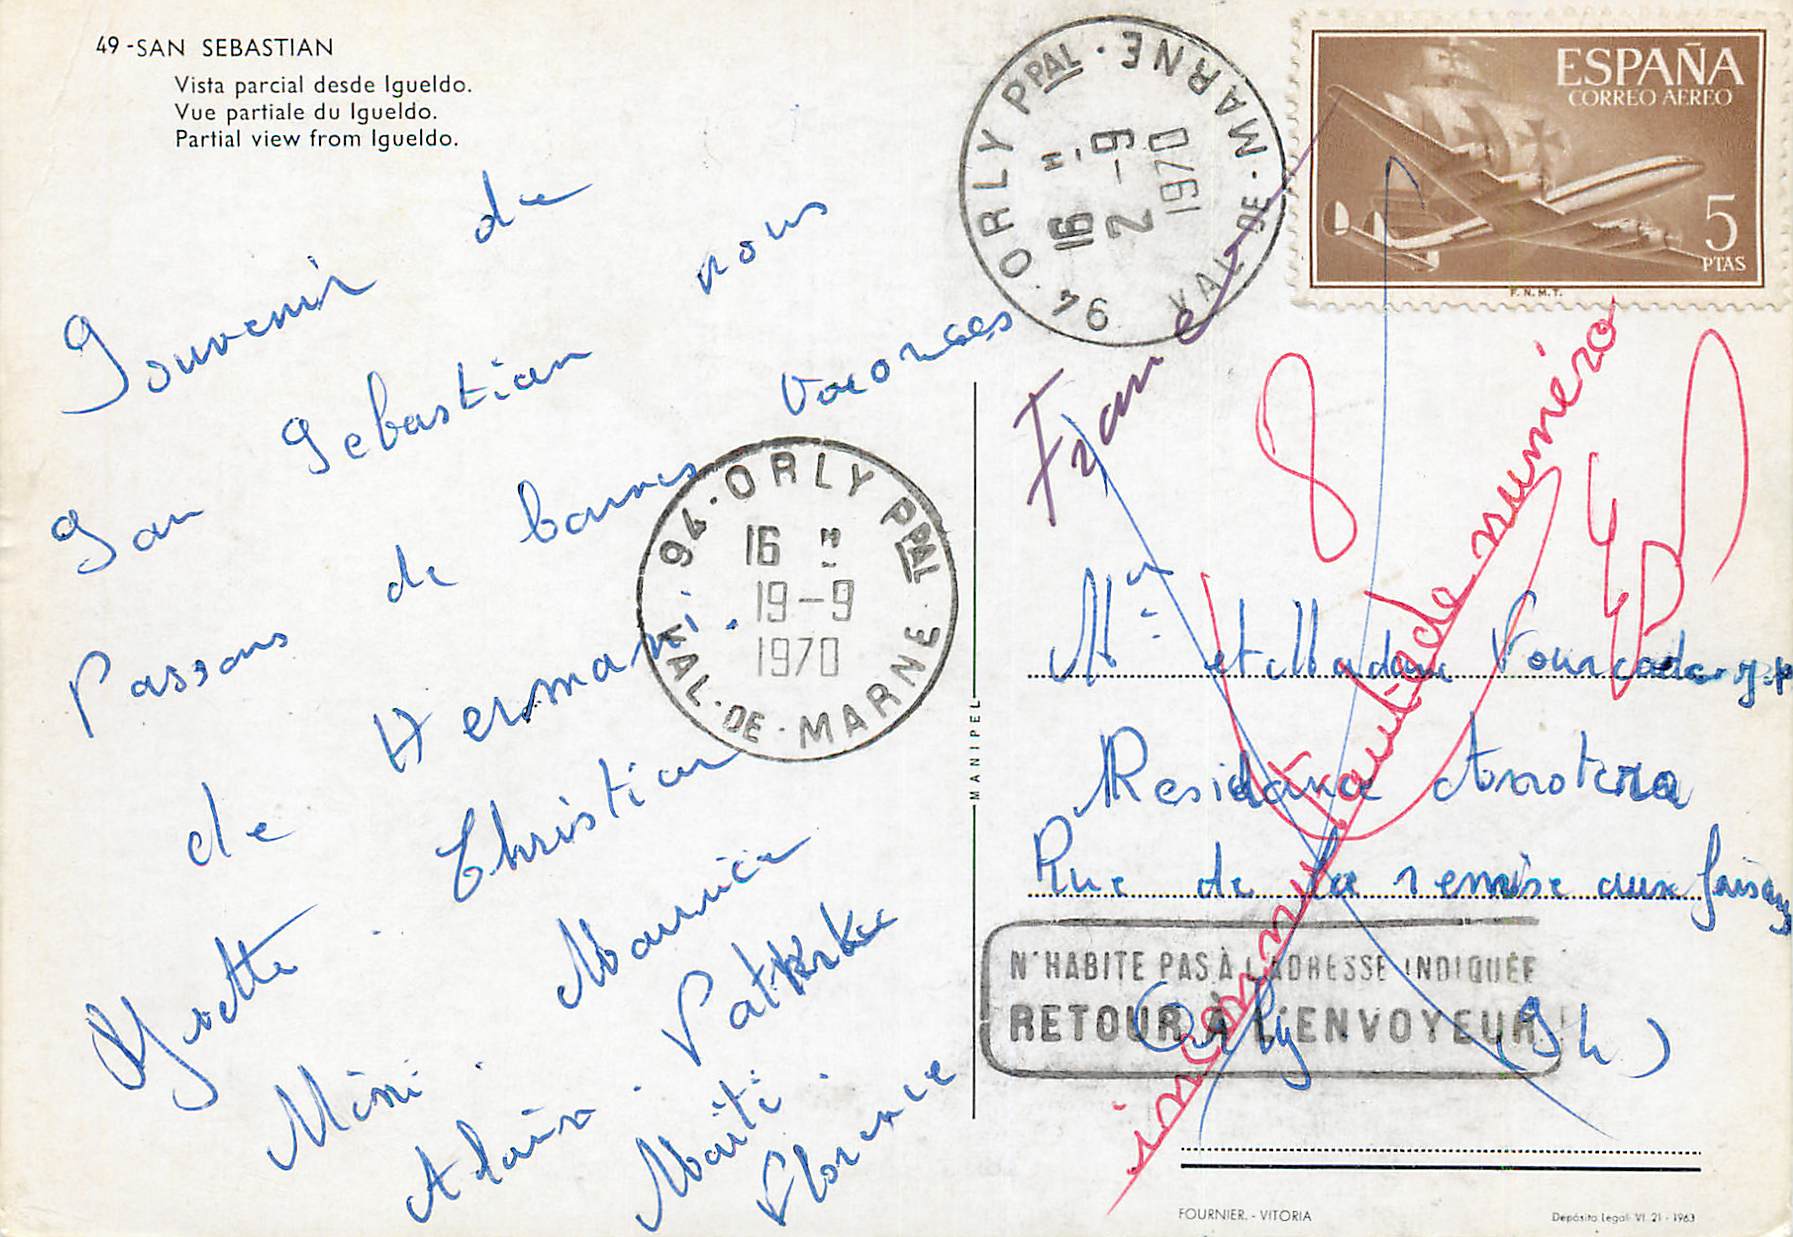 49 - SAN SEBASTIAN
Vista parcial desde Igueldo.
Vue partiale du Igueldo.
Partial view from Igueldo.
Souvenir de
San Sebastian nous
Passons de bonnes vacances
de Hernani.
Yvette. Christian
Mimi. Maurice
Alain. Patrick
Maïté. Florence
94 - ORLY PPAL
16 H
19-9
1970
VAL-DE-MARNE
94 · ORLY PPAL · VAL-DE-MARNE
16 H
2-9
1970
ESPAÑA
CORREO AEREO
5
PTAS
F.N.M.T.
France
8
inconnu tantiède numéro
Mr et Madame Fourcade
Residence
Rue de la remise aux faisans
Orly (94)
N'HABITE PAS À L'ADRESSE INDIQUÉE
RETOUR À L'ENVOYEUR
MANIPEL
FOURNIER. - VITORIA
Depósito Legal: VI. 21 - 1963